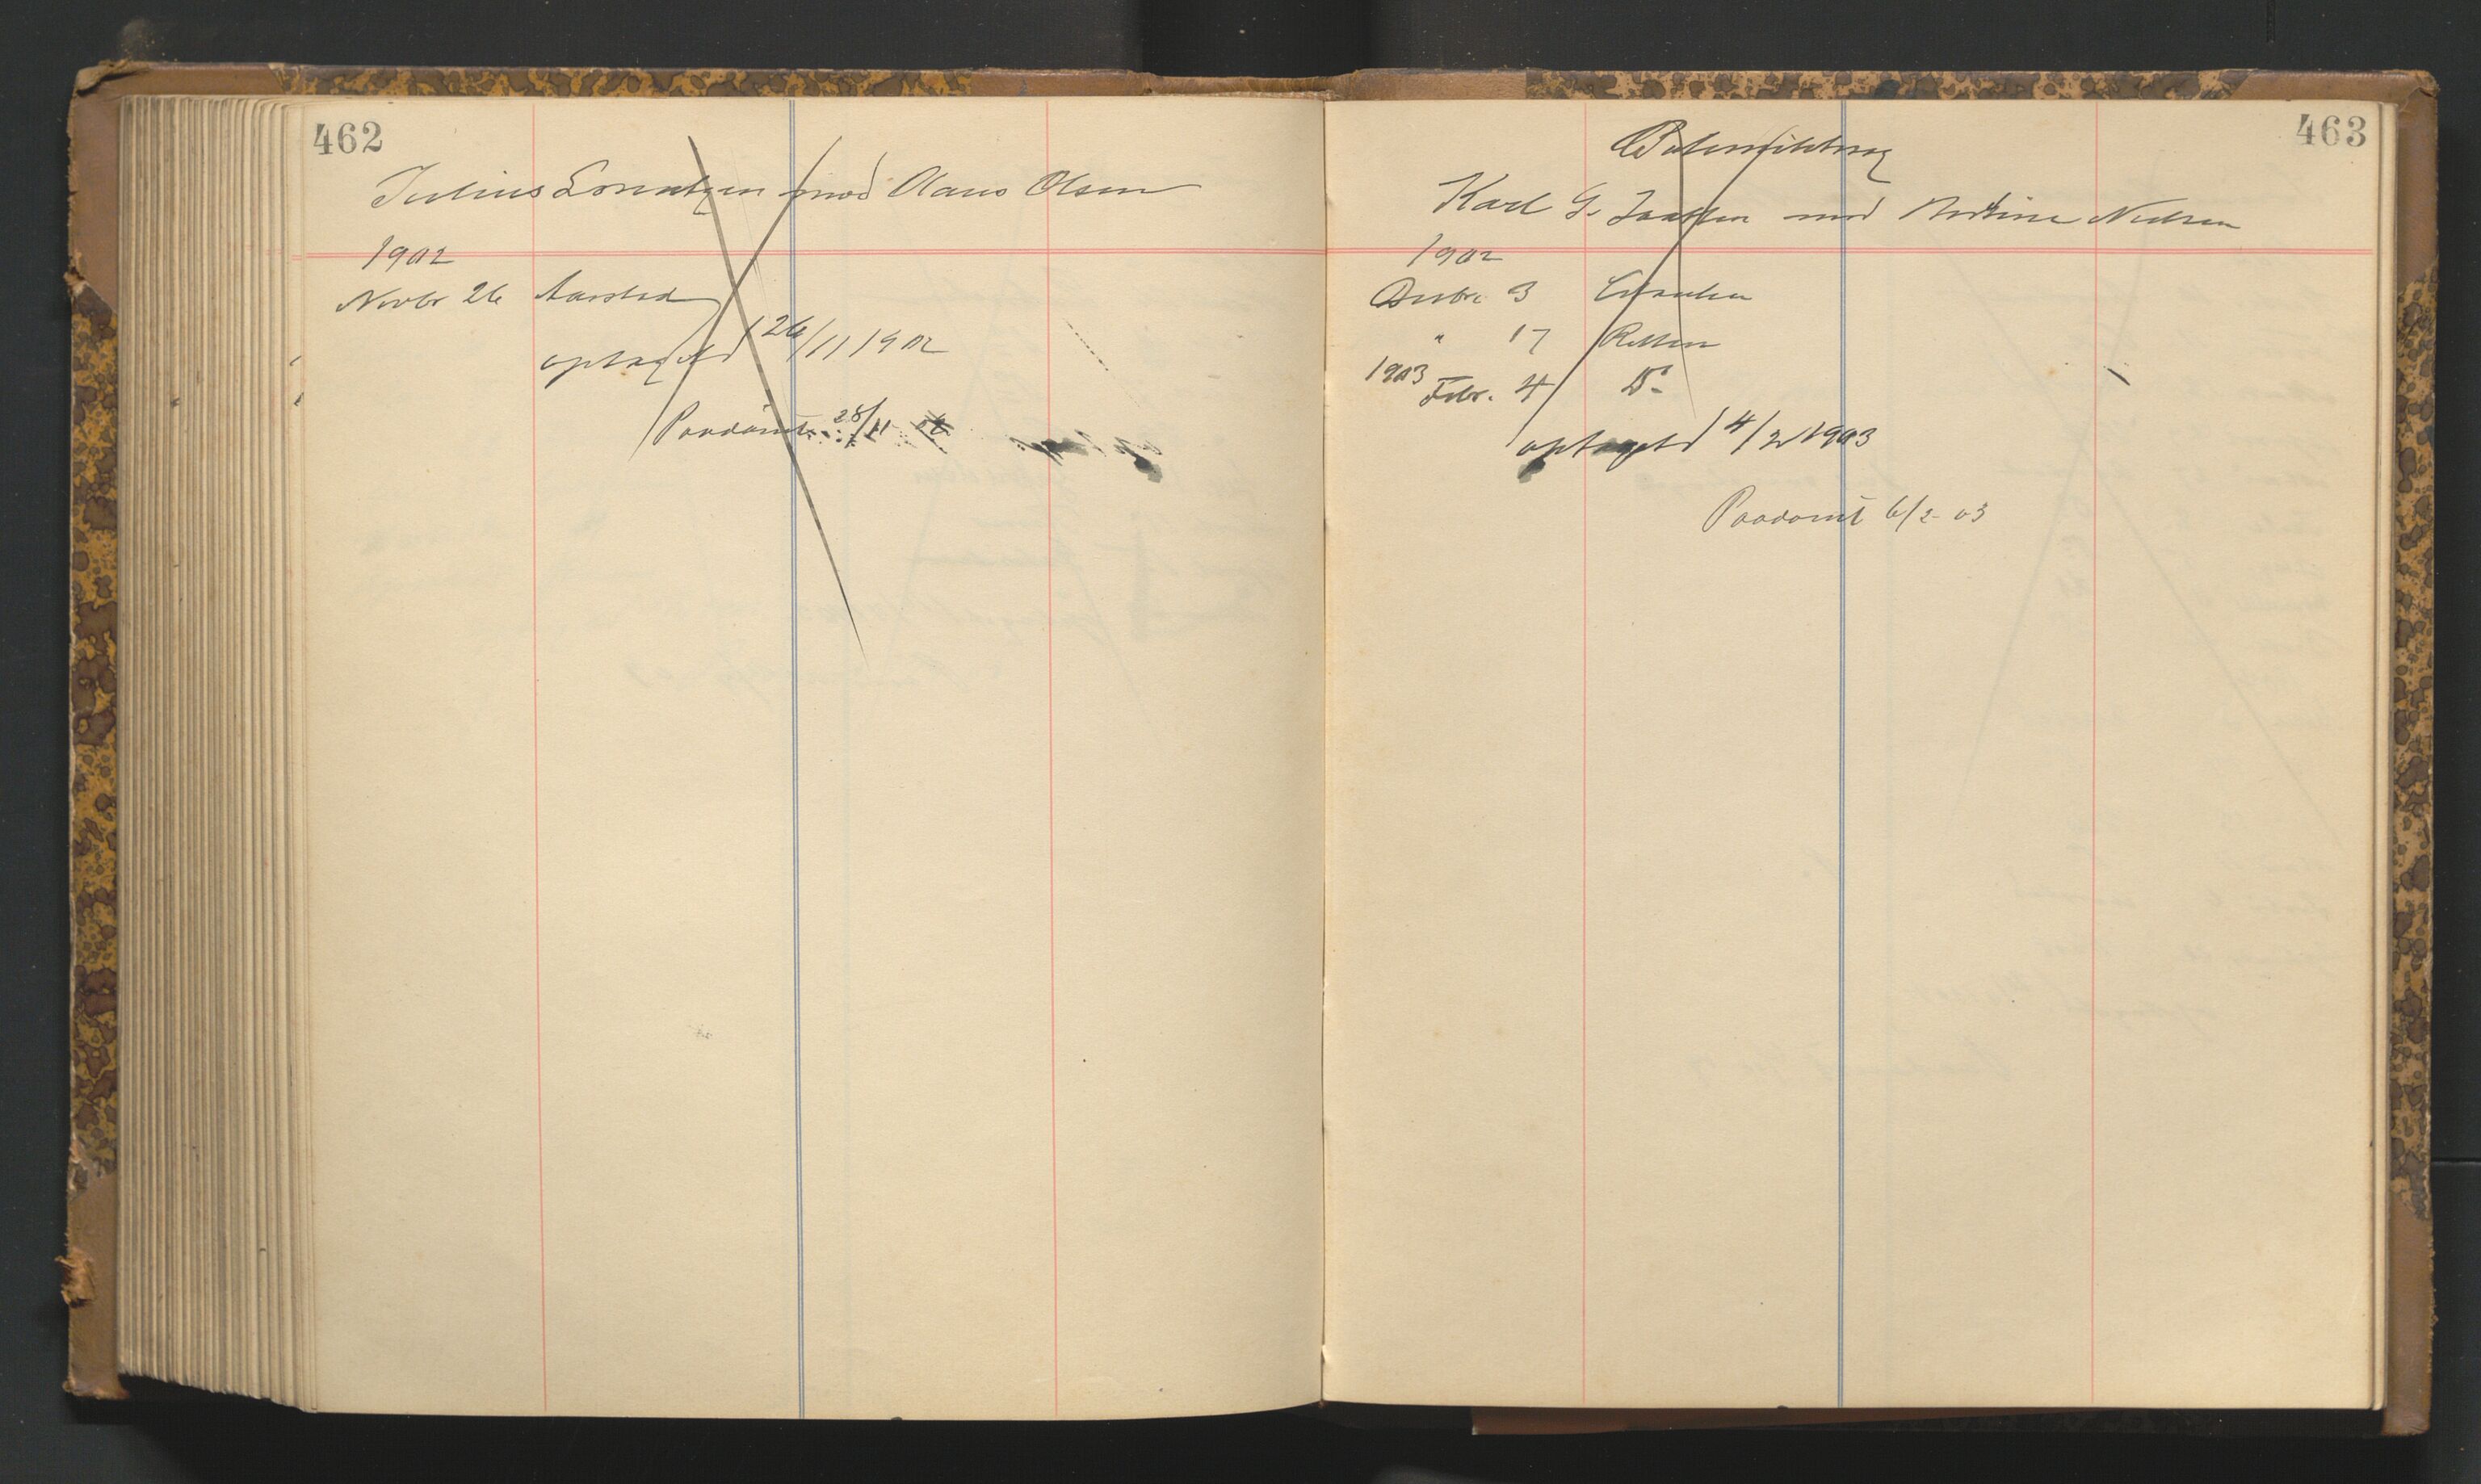 462
Julius Lorentzen mod Olaus Olsen
1902
Novbr 26 Aarstad
optaget d 26/11 1902
Paadømt 28/11 02
463
Karl G. mod Nielsen
1902
Decbr. 3
" 17 Retten
1903
Febr. 4 Do
optaget d 4/2 1903
Paadømt 6/2 03